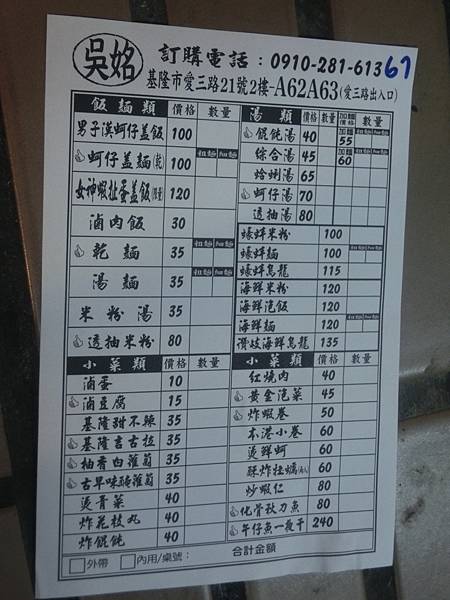 吳姳
訂購電話：0910-281-613
67
基隆市愛三路21號2樓-A62A63(愛三路出入口)
飯麵類 價格 數量
男子漢蚵仔蓋飯 100
蚵仔蓋麵(乾) 100
女神蝦扯蛋蓋飯 120
滷肉飯 30
乾麵 35
湯麵 35
米粉湯 35
透抽米粉 80
湯類 價格 數量 加麵價格 數量
餛飩湯 40 55
綜合湯 45 60
蛤蜊湯 65
蚵仔湯 70
透抽湯 80
蝦蚌米粉 100
蝦蚌麵 100
蝦蚌烏龍 115
海鮮米粉 120
海鮮泡飯 120
海鮮麵 120
讚岐海鮮烏龍 135
小菜類 價格 數量
滷蛋 10
滷豆腐 15
基隆甜不辣 35
基隆吉古拉 35
柚香白蘿蔔 35
古早味 蘿蔔 35
燙青菜 40
炸花枝丸 40
炸餛飩 40
小菜類 價格 數量
紅燒肉 40
黃金泡菜 45
炸蝦卷 50
本港小卷 60
燙鮮蚵 60
酥炸牡蠣 60
炒蝦仁 80
化骨秋刀魚 80
午仔魚一夜干 240
外帶 內用/桌號： 合計金額